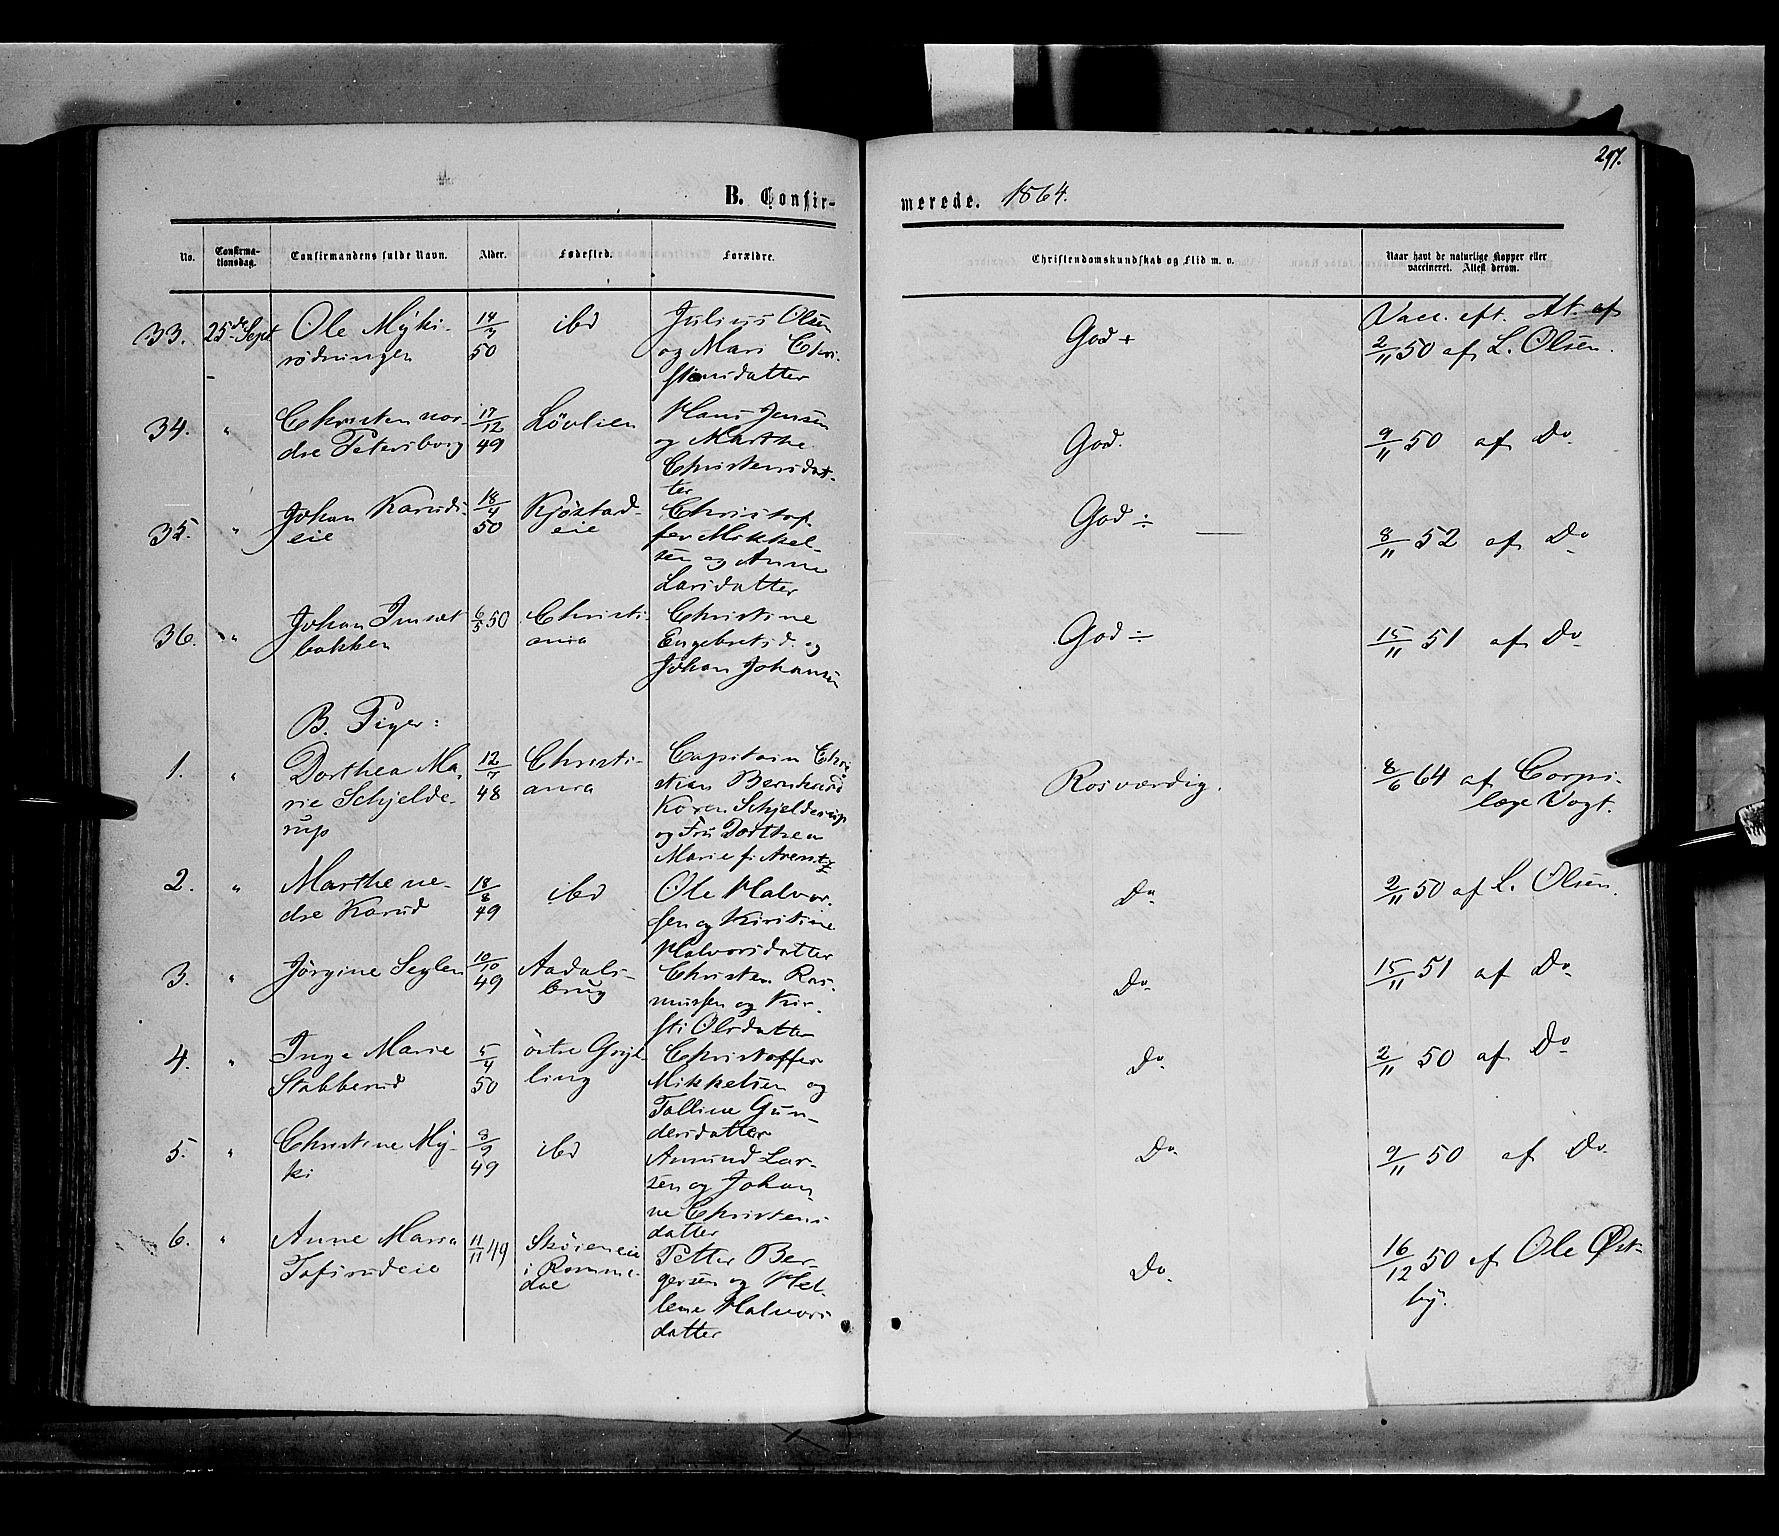 297.
B. Confirmerede. 1864.
No. Confirmationsdag. Confirmandens fulde Navn. Alder. Fødested. Forældre. Christendomskundskab og Flid m. v. Naar havt de naturlige Kopper eller vaccineret. Attest derom.
33. 25de Sept Ole Myki-
rødningen
14/7 50
ibd
Julius Olsen
og Mari Chri-
stensdatter
God +
Vacc. eft. At. af
2/11 50 af L. Olsen.
34. " Christen nor-
dre Petersborg
17/12 49
Løvlien
Hans Jensen
og Marthe
Christensdat-
ter
God.
9/11 50 af Do
35. " Johan Karuds-
eie
18/4 50
Kjøstad-
eie
Christof-
fer Mikkel-
sen og Anne
Larsdatter
God ÷
8/11 52 af Do
36. " Johan Imset
bakken
6/5 50
Christi-
ania
Christine
Engebretsd. og
Johan Johansen
God ÷
15/11 51 af Do
B. Piger:
1. " Dorthea Ma-
rie Schjelde-
rup
12/7 48
Christi-
ania
Capitain Chri
stian Berndt
Koren Schjelderup
og Fru Dorthea
Marie f. Arentz
Rosværdig.
8/6 64 af Corps-
læge Vogt.
2. " Marthe ne-
dre Karud
18/8 49
ibd
Ole Halvor-
sen og Kirstine
Halvorsdatter
Do
2/11 50 af L. Olsen.
3. " Jørgine Seglen
10/10 49
Aadals-
brug
Christen Ras-
mussen og Kir-
sti Olsdatter
Do
15/11 51 af Do
4. " Inge Marie
Stabberud
5/4 50
østre Gryl-
ling
Christoffer
Mikkelsen og
Talline Gun-
dersdatter
Do
2/11 50 af Do
5. " Christine My-
ki
8/9 49
ibd
Amund Lar-
sen og Johan-
ne Christens
datter
Do
9/11 50 af Do
6. " Anne Maria
Tofsrudeie
11/11 49
Skøieneie
i Romme-
dal
Petter Ber-
gersen og Hel-
lene Halvors
datter
Do
16/12 50 af Ole Øst-
by.